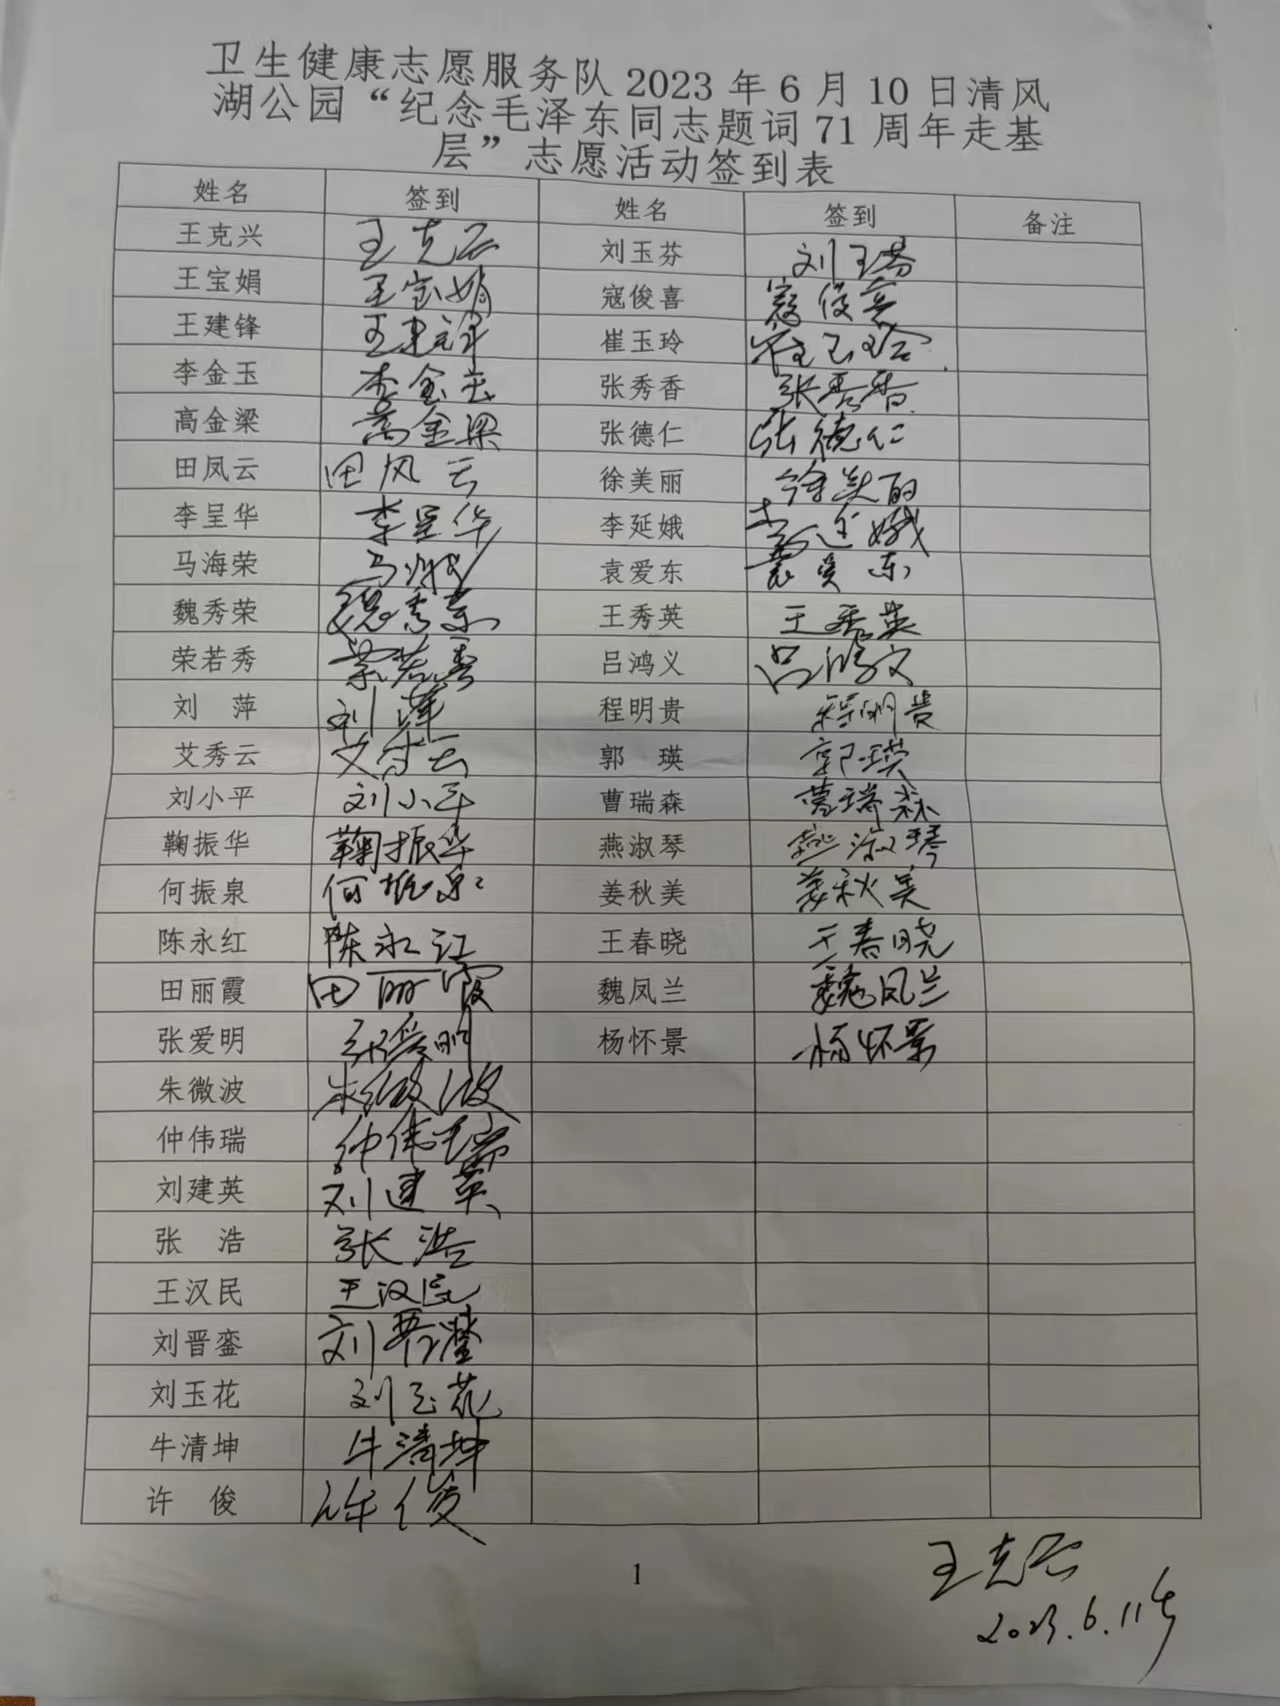 卫生健康志愿服务队 2023 年 6 月 10 日清风
湖公园“纪念毛泽东同志题词 71 周年走基
层”志愿活动签到表
姓名 签到 姓名 签到 备注
王克兴 王克兴 刘玉芬 刘玉芬
王宝娟 王宝娟 寇俊喜 寇俊喜
王建锋 王建锋 崔玉玲 崔玉玲
李金玉 李金玉 张秀香 张秀香
高金梁 高金梁 张德仁 张德仁
田凤云 田风云 徐美丽 徐美丽
李呈华 李呈华 李延娥 李延娥
马海荣 袁爱东 袁爱东
魏秀荣 魏秀荣 王秀英 王秀英
荣若秀 荣若秀 吕鸿义 吕鸿文
刘 萍 刘萍 程明贵 程明贵
艾秀云 艾秀云 郭 瑛 郭瑛
刘小平 刘小平 曹瑞森 曹瑞森
鞠振华 鞠振华 燕淑琴 燕淑琴
何振泉 何振泉 姜秋美 姜秋美
陈永红 陈永红 王春晓 王春晓
田丽霞 田丽霞 魏凤兰 魏凤兰
张爱明 张爱明 杨怀景 杨怀景
朱微波 朱微波
仲伟瑞 仲伟瑞
刘建英 刘建英
张 浩 张浩
王汉民 王汉民
刘晋銮 刘晋銮
刘玉花 刘玉花
牛清坤 牛清坤
许 俊 许俊
1
王克兴
2023.6.11